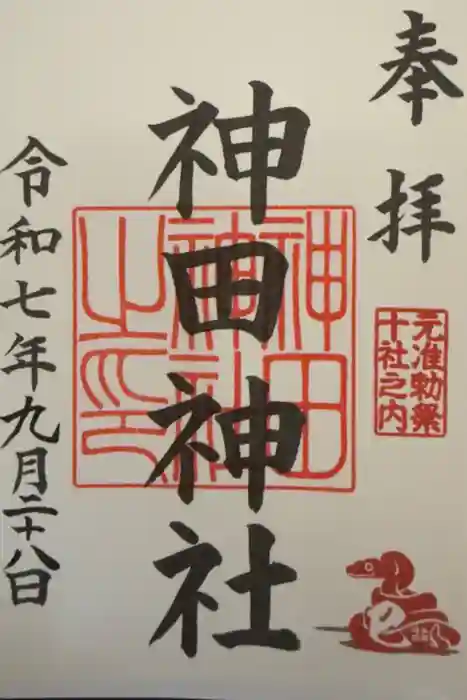 奉拝
元准勅祭
十社之内
神田神社
神田
神社
之印
令和七年九月二十八日